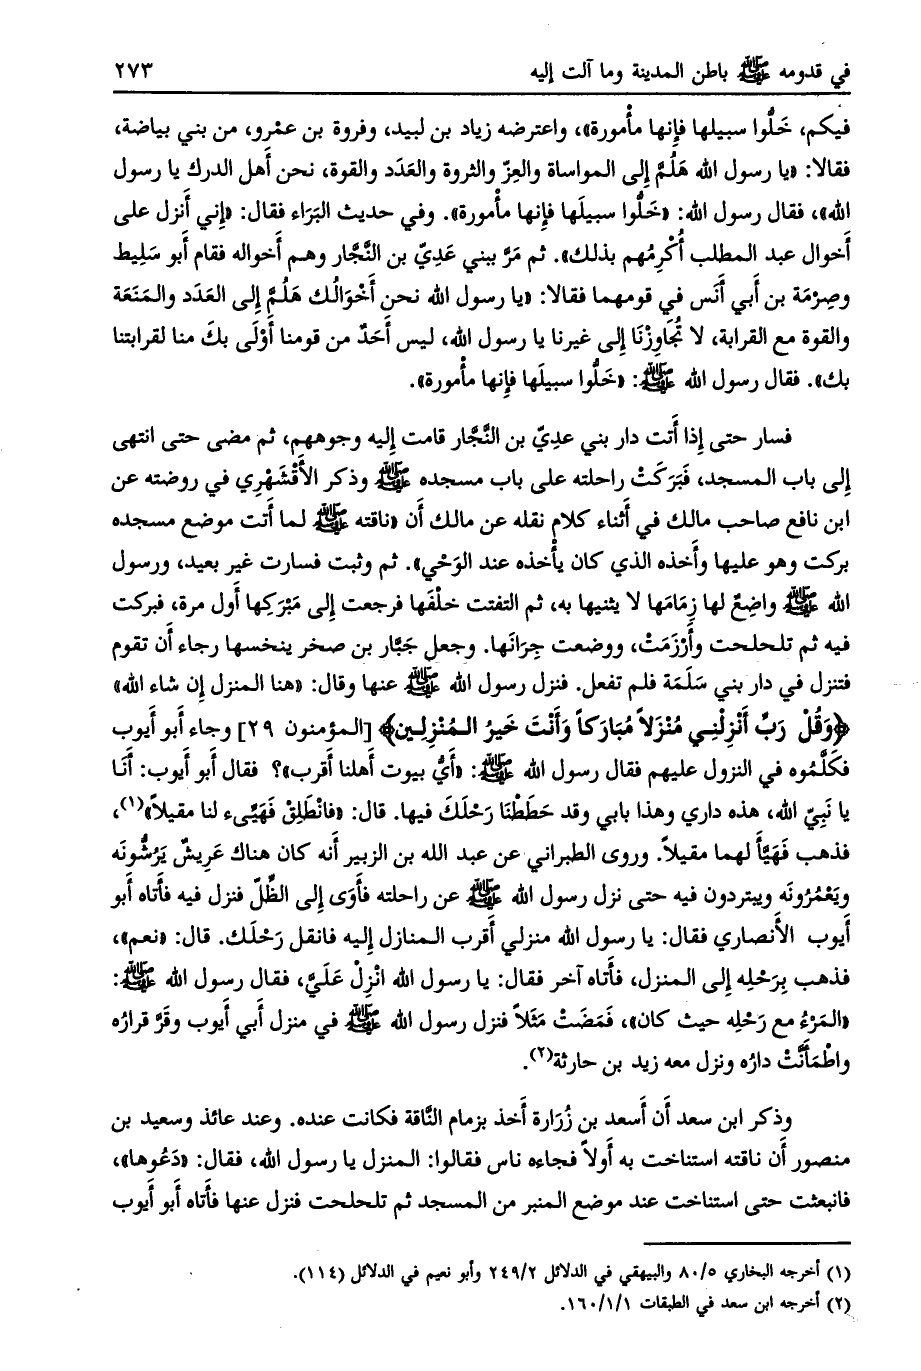 في قدومه ﷺ باطن المدينة وما آلت إليه ٢٧٣
فيكم، خَلُّوا سبيلها فإنها مأمورة»، واعترضه زياد بن لبيد، وفروة بن عمْرو، من بني بياضة،
فقالا: «يا رسول الله هَلُمَّ إلى المواساة والعِزّ والثروة والعَدَد والقوة، نحن أهل الدرك يا رسول
الله»، فقال رسول الله: «خَلُّوا سبيلَها فإنها مأمورة». وفي حديث البَرَاء فقال: «إني أنزل على
أخوال عبد المطلب أُكْرِمُهم بذلك». ثم مَرَّ ببني عَدِيّ بن النَّجَّار وهم أخواله فقام أبو سَلِيط
وصِرْمَة بن أبي أنَس في قومهما فقالا: «يا رسول الله نحن أَخْوَالُك هَلُمَّ إلى العَدَد والمَنَعَة
والقوة مع القرابة، لا تُجَاوِزْنَا إلى غيرنا يا رسول الله، ليس أَحَدٌ من قومنا أوْلَى بكَ منا لقرابتنا
بك». فقال رسول الله ﷺ: «خَلُّوا سبيلَها فإنها مأمورة».
فسار حتى إذا أتت دار بني عديّ بن النَّجَّار قامت إليه وجوههم، ثم مضى حتى انتهى
إلى باب المسجد، فَبَرَكَتْ راحلته على باب مسجده ﷺ وذكر الأَقْشَهْرِي في روضته عن
ابن نافع صاحب مالك في أثناء كلام نقله عن مالك أن «ناقته ﷺ لما أتت موضع مسجده
بركت وهو عليها وأخذه الذي كان يأخذه عند الوَحْي». ثم وثبت فسارت غير بعيد، ورسول
الله ﷺ واضِعٌ لها زِمَامَها لا يثنيها به، ثم التفتت خلْفَها فرجعت إلى مَبْرَكِها أول مرة، فبركت
فيه ثم تلحلحت وأَرْزَمَتْ، ووضعت جِرَانَها. وجعل جَبَّار بن صخر ينخسها رجاء أن تقوم
فتنزل في دار بني سَلَمَة فلم تفعل. فنزل رسول الله ﷺ عنها وقال: «هنا المنزل إن شاء الله»
﴿وَقُلْ رَبِّ أَنْزِلْنِي مُنْزَلاً مُبَارَكاً وَأَنْتَ خَيرُ المُنْزِلِين﴾ [المؤمنون ٢٩] وجاء أبو أيوب
فكَلَّمُوه في النزول عليهم فقال رسول الله ﷺ: «أيُّ بيوت أهلنا أقرب»؟ فقال أبو أيوب: أَنَا
يا نَبِيّ الله، هذه داري وهذا بابي وقد حَطَطْنَا رَحْلَكَ فيها. قال: «فانْطَلِقْ فَهَيِّىء لنا مقيلاً»(١)،
فذهب فَهَيَّأ لهما مقيلاً. وروى الطبراني عن عبد الله بن الزبير أنه كان هناك عَرِيشٌ يَرُشُّونَه
ويَعْمُرُونَه ويبتردون فيه حتى نزل رسول الله ﷺ عن راحلته فأوَى إلى الظِّلّ فنزل فيه فأتاه أبو
أيوب الأنصاري فقال: يا رسول الله منزلي أقرب المنازل إليه فانقل رَحْلَك. قال: «نعم»،
فذهب بِرَحْلِه إلى المنزل، فأتاه آخر فقال: يا رسول الله انْزِلْ عَلَيَّ، فقال رسول الله ﷺ:
«المَرْءُ مع رَحْلِه حيث كان»، فَمَضَتْ مَثَلاً فنزل رسول الله ﷺ في منزل أبي أيوب وقَرَّ قرارُه
واطْمَأَنَّتْ دارُه ونزل معه زيد بن حارثة(٢).
وذكر ابن سعد أن أسعد بن زُرَارة أخذ بزمام النَّاقة فكانت عنده. وعند عائذ وسعيد بن
منصور أن ناقته استناخت به أولاً فجاءه ناس فقالوا: المنزل يا رسول الله، فقال: «دَعُوها»،
فانبعثت حتى استناخت عند موضع المنبر من المسجد ثم تلحلحت فنزل عنها فأتاه أبو أيوب
(١) أخرجه البخاري ٨٠/٥ والبيهقي في الدلائل ٢٤٩/٢ وأبو نعيم في الدلائل (١١٤).
(٢) أخرجه ابن سعد في الطبقات ١٦٠/١/١.